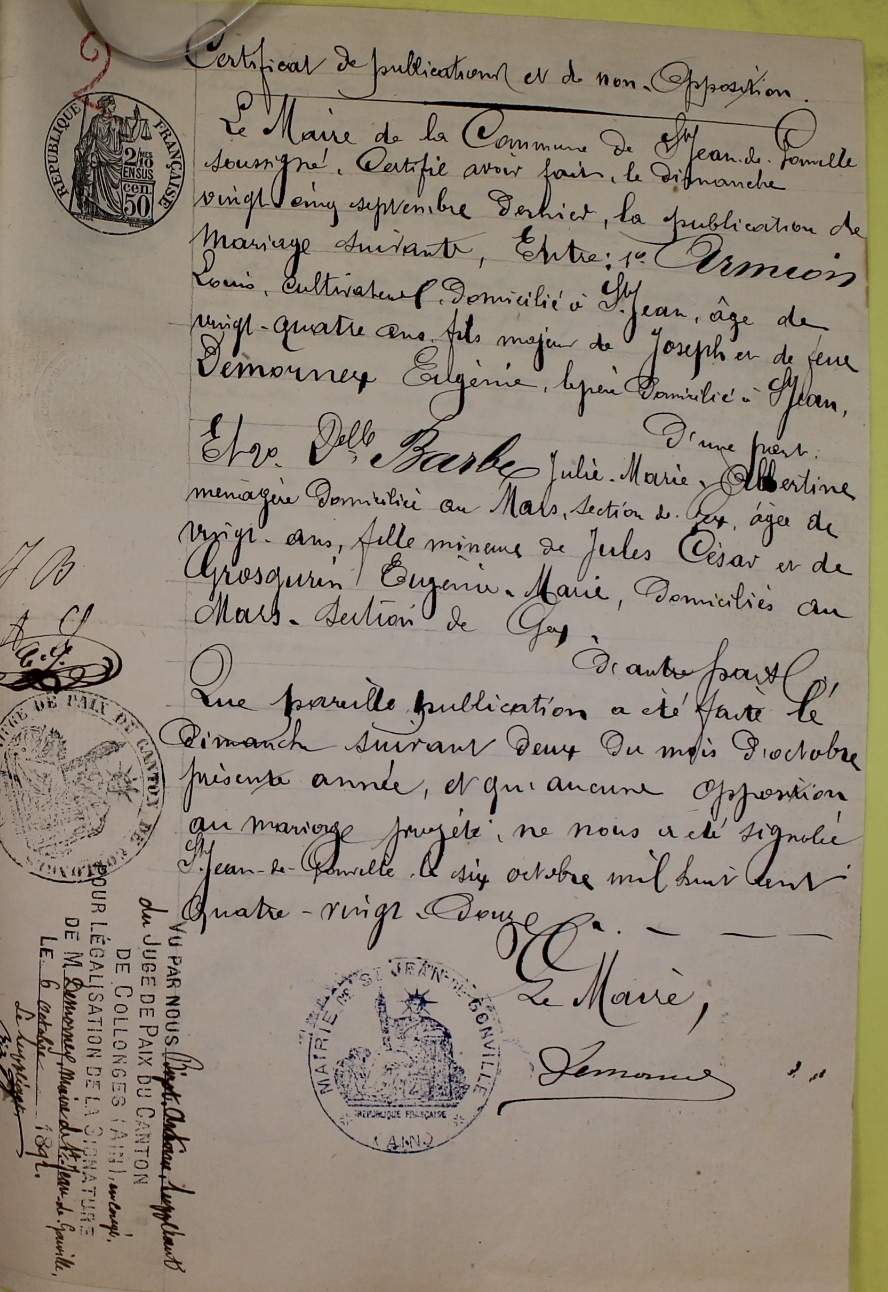 Certificat de publications et de non-Opposition.
Le Maire de la Commune de St Jean-de-Gonville
soussigné, Certifie avoir fait, le dimanche
vingt cinq septembre dernier, la publication de
mariage suivante, Entre: 1o Armeois
Louis, cultivateur, Domicilié à St Jean, âge de
vingt-quatre ans, fils majeur de Joseph et de feue
Demornex Eugénie, le père Domicilié à St Jean,
D'une part.
Et 2o Delle Barbe Julie-Marie-Albertine
menagère Domiciliée au Mars, section de Gex, âgée de
vingt-ans, fille mineure de Jules César et de
Grosgurin Eugénie-Marie, Domiciliés au
Mars-section de Gex,
D'autre part,
Que pareille publication a été faite le
Dimanche suivant deux du mois d'octobre
présente année, et qu'aucune opposition
au mariage projeté, ne nous a été signalée
St Jean-de-Gonville le six octobre mil huit cent
quatre-vingt-Douze.
Le Maire,
Demornex
RÉPUBLIQUE FRANÇAISE
2/10 EN SUS
50 cen
J B
A G
JUSTICE DE PAIX DU CANTON DE COLLONGES
MAIRIE DE ST JEAN-DE-GONVILLE
RÉPUBLIQUE FRANÇAISE
(AIN)
VU PAR NOUS suppléant
du JUGE DE PAIX DU CANTON
DE COLLONGES (AIN), en congé,
POUR LÉGALISATION DE LA SIGNATURE
DE M. Demornex, Maire de St Jean-de-Gonville,
LE 6 octobre 1892.
Le suppléant